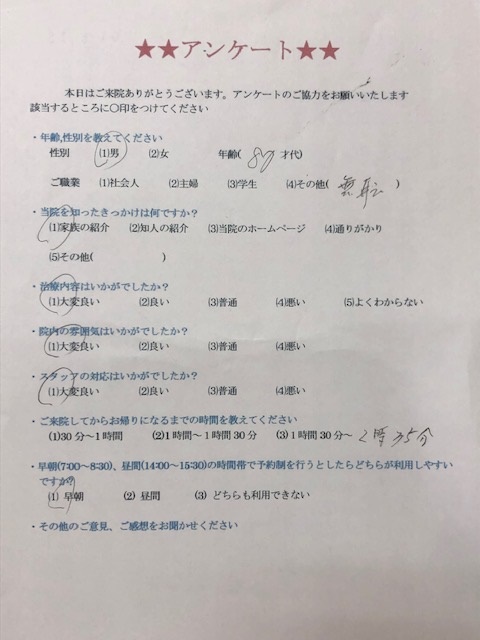 ★★アンケート★★
本日はご来院ありがとうございます。アンケートのご協力をお願いいたします
該当するところに〇印をつけてください
・年齢,性別を教えてください
性別 (1)男 (2)女 年齢( 80 才代)
ご職業 (1)社会人 (2)主婦 (3)学生 (4)その他( 無職 )
・当院を知ったきっかけは何ですか？
(1)家族の紹介 (2)知人の紹介 (3)当院のホームページ (4)通りがかり
(5)その他( )
・治療内容はいかがでしたか？
(1)大変良い (2)良い (3)普通 (4)悪い (5)よくわからない
・院内の雰囲気はいかがでしたか？
(1)大変良い (2)良い (3)普通 (4)悪い
・スタッフの対応はいかがでしたか？
(1)大変良い (2)良い (3)普通 (4)悪い
・ご来院してからお帰りになるまでの時間を教えてください
(1)30分～1時間 (2)1時間～1時間30分 (3)1時間30分～ 35分
・早朝(7:00～8:30)、昼間(14:00～15:30)の時間帯で予約制を行うとしたらどちらが利用しやすい
ですか？
(1) 早朝 (2) 昼間 (3) どちらも利用できない
・その他のご意見、ご感想をお聞かせください